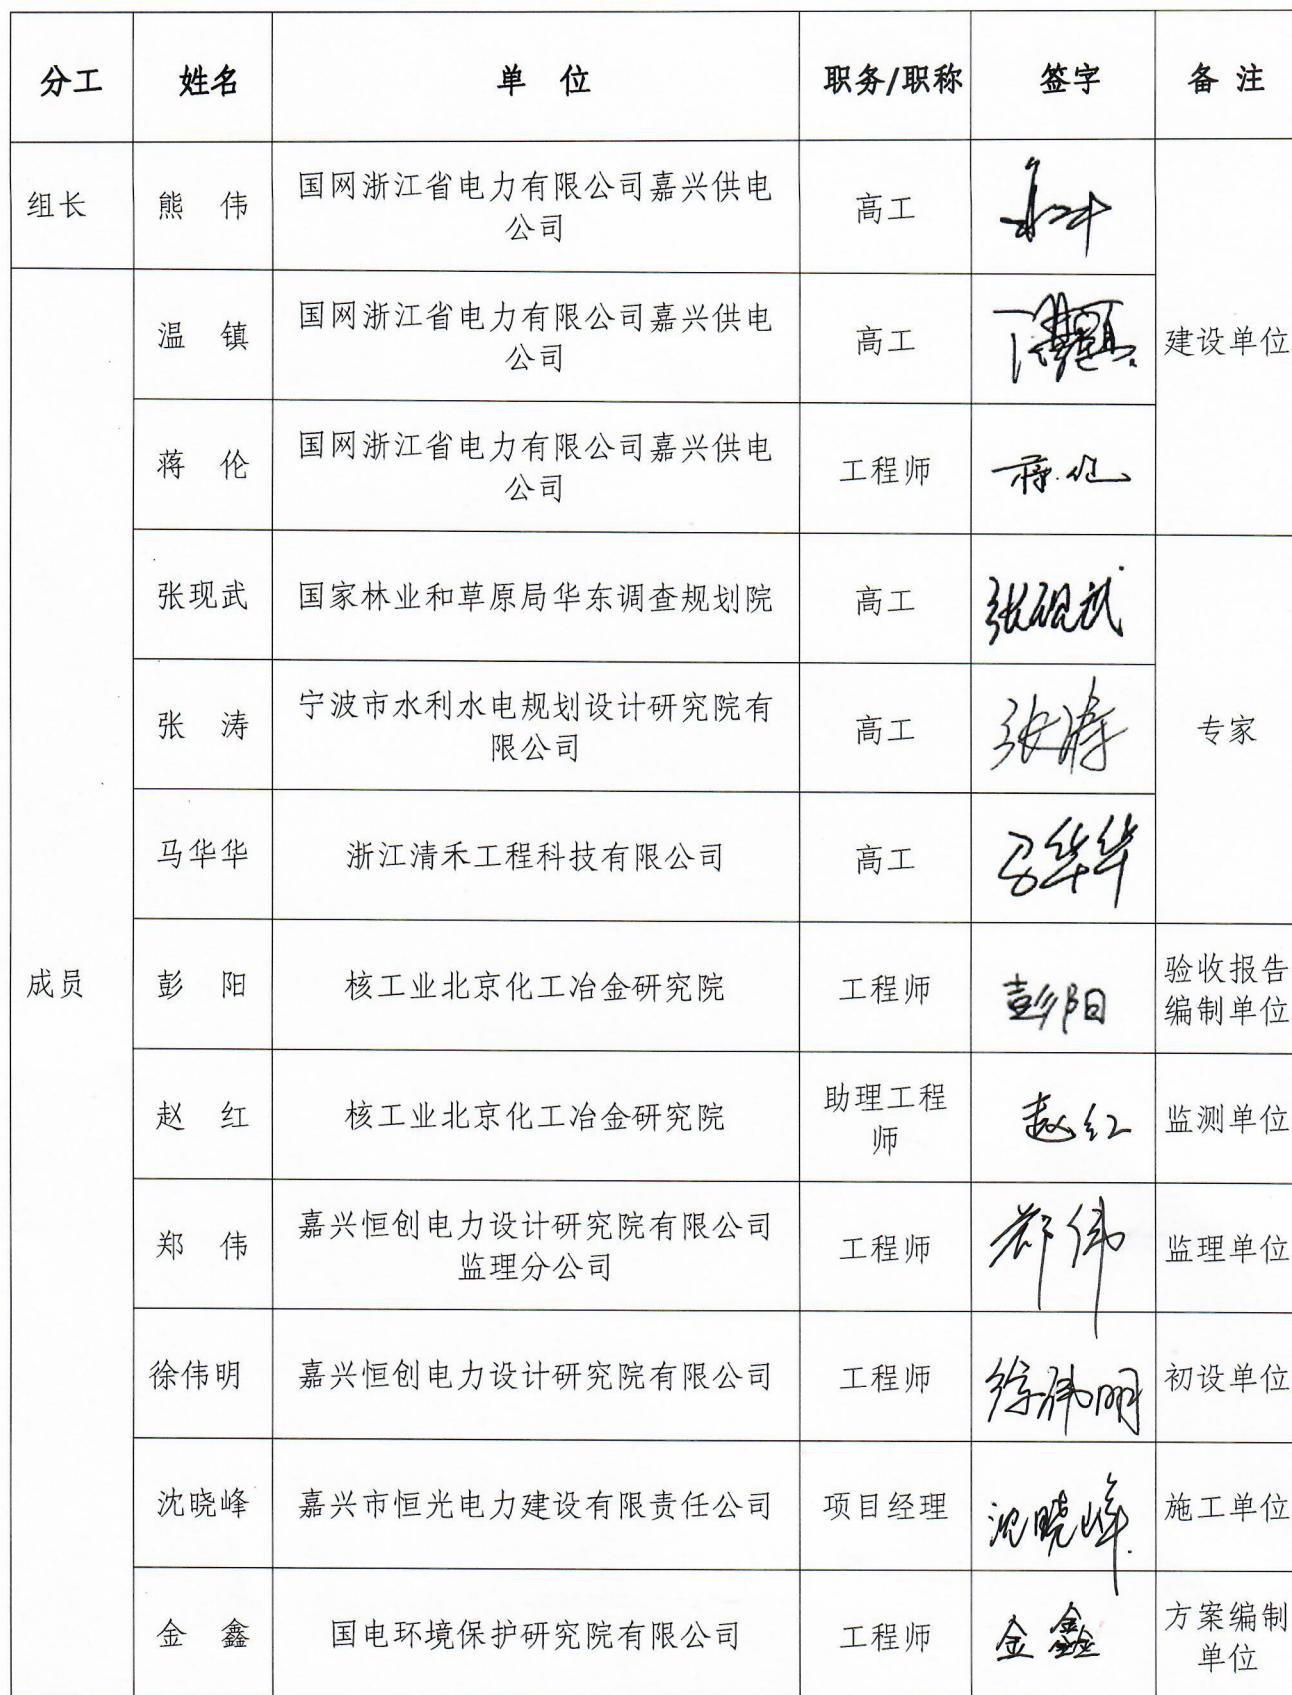 分工 姓名 单 位 职务/职称 签字 备 注
组长 熊 伟 国网浙江省电力有限公司嘉兴供电
公司 高工
建设单位
成员
温 镇 国网浙江省电力有限公司嘉兴供电
公司 高工
蒋 伦 国网浙江省电力有限公司嘉兴供电
公司 工程师 蒋伦
张现武 国家林业和草原局华东调查规划院 高工 张现武
专家
张 涛 宁波市水利水电规划设计研究院有
限公司 高工 张涛
马华华 浙江清禾工程科技有限公司 高工 马华华
彭 阳 核工业北京化工冶金研究院 工程师 彭阳 验收报告
编制单位
赵 红 核工业北京化工冶金研究院 助理工程
师 赵红 监测单位
郑 伟 嘉兴恒创电力设计研究院有限公司
监理分公司 工程师 郑伟 监理单位
徐伟明 嘉兴恒创电力设计研究院有限公司 工程师 徐伟明 初设单位
沈晓峰 嘉兴市恒光电力建设有限责任公司 项目经理 沈晓峰 施工单位
金 鑫 国电环境保护研究院有限公司 工程师 金鑫 方案编制
单位